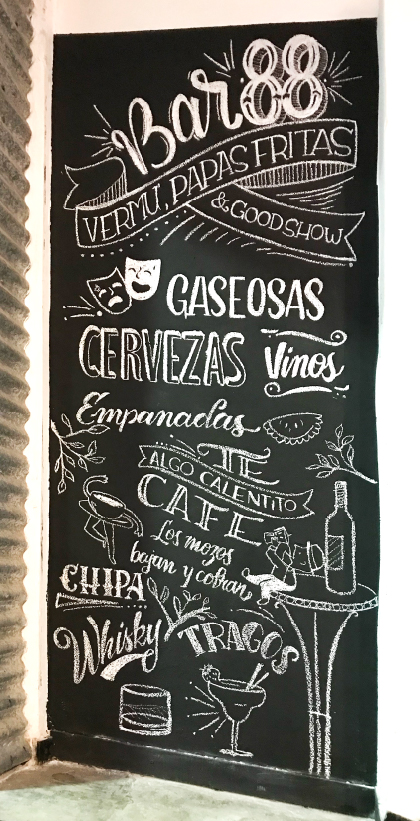 Bar 88
VERMÚ, PAPAS FRITAS
& GOOD SHOW
GASEOSAS
CERVEZAS Vinos
Empanadas
TE
ALGO CALENTITO
CAFE
Los mozos
bajan y cobran
CHIPA
Whisky TRAGOS